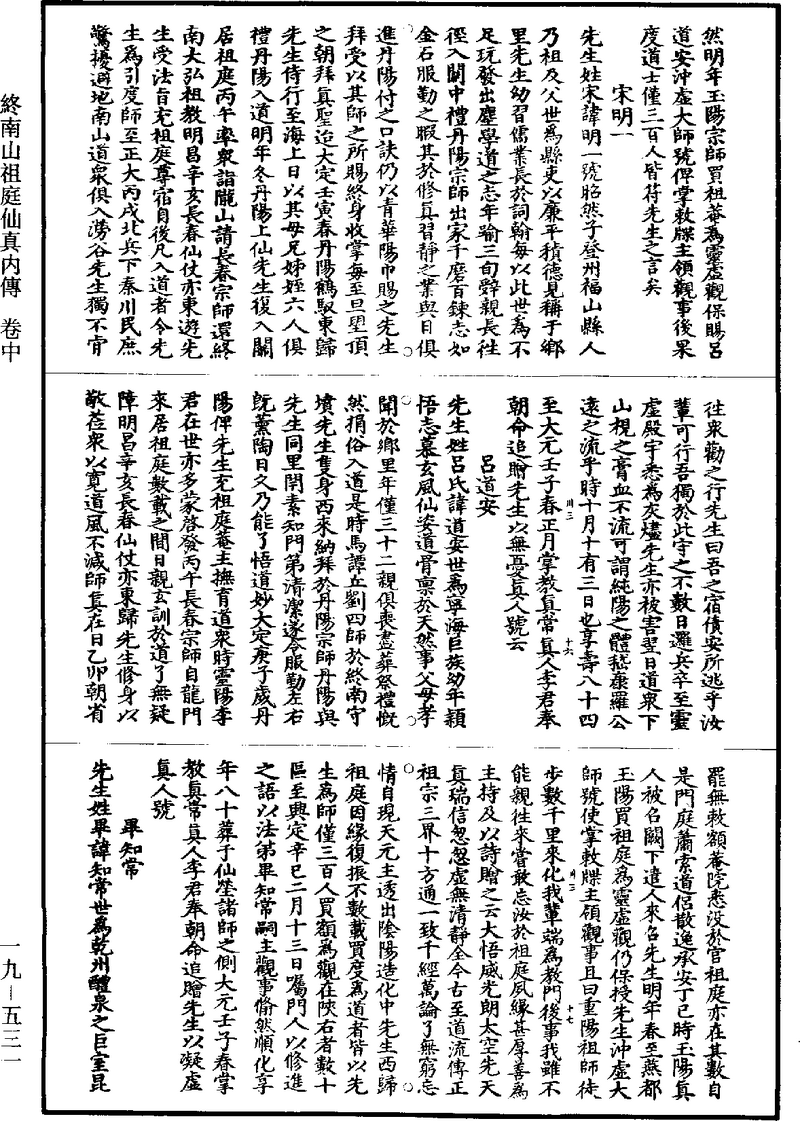 然明年玉陽宗師買祖菴為靈虛觀保賜呂
道安沖虛大師號俾掌敕牒主領觀事後果
度道士僅三百人皆符先生之言矣
宋明一
先生姓宋諱明一號昭然子登州福山縣人
乃祖及父世為縣吏以廉平積德見稱于鄉
里先生幼習儒業長於詞翰每以此世為不
足玩發出塵學道之志年踰三旬辭親長往
徑入關中禮丹陽宗師出家千磨百鍊志如
金石服勤之暇其於修真習靜之業與日俱
進丹陽付之口訣仍以青華陽巾賜之先生
拜受以其師之所賜終身收掌每至旦望頂
之朝拜真聖迨大定壬寅春丹陽鶴馭東歸
先生侍行至海上日以其母兄姊姪六人俱
禮丹陽入道明年冬丹陽上仙先生復入關
居祖庭丙午率眾詣隴山請長春宗師還終
南大弘祖教明昌辛亥長春仙仗亦東遊先
生受法旨充祖庭尊宿自後凡入道者令先
生為引度師至正大丙戌北兵下秦川民庶
驚擾避地南山道眾俱入澇谷先生獨不肯
往眾勸之行先生曰吾之宿債安所逃乎汝
輩可行吾獨於此守之不數日邏兵卒至靈
虛殿宇悉為灰燼先生亦被害翌日道眾下
山視之膏血不流可謂純陽之體嵇康羅公
遠之流乎時十月十有三日也享壽八十四
至大元壬子春正月掌教真常真人李君奉
朝命追贈先生以無憂真人號云
呂道安
先生姓呂氏諱道安世為寧海巨族幼年穎
悟志慕玄風仙姿道骨稟於天然事父母孝
聞於鄉里年僅三十二親俱喪盡葬祭禮慨
然捐俗入道是時馬譚丘劉四師於終南守
墳先生隻身西來納拜於丹陽宗師丹陽與
先生同里閈素知門第清潔遂令服勤左右
既薰陶日久乃能了悟道妙大定庚子歲丹
陽俾先生充祖庭菴主撫育道眾時靈陽李
君在世亦多蒙啓發丙午長春宗師自龍門
來居祖庭數載之間日親玄訓於道了無疑
障明昌辛亥長春仙仗亦東歸先生修身以
敬莅眾以寬道風不減師真在日乙卯朝省
罷無敕額菴院悉沒於官祖庭亦在其數自
是門庭蕭索道侶散逸承安丁巳時玉陽真
人被召闕下遣人來召先生明年春至燕都
玉陽買祖庭為靈虛觀仍保授先生沖虛大
師號使掌敕牒主領觀事且曰重陽祖師徒
步數千里來化我輩端為教門後事我雖不
能親往來嘗敢忘汝於祖庭夙緣甚厚善為
主持及以詩贈之云大悟威光朗太空先天
真瑞信忽忽虛無清靜全今古至道流傳正
祖宗三界十方通一致千經萬論了無窮忘
情自現天元主透出陰陽造化中先生西歸
祖庭因緣復振不數載買度為道者皆以先
生為師僅三百人買額為觀在陝右者數十
區至興定辛巳二月十三日囑門人以修進
之語以法弟畢知常嗣主觀事翛然順化享
年八十葬于仙塋諸師之側大元壬子春掌
教真常真人李君奉朝命追贈先生以凝虛
真人號
畢知常
先生姓畢諱知常世為乾州醴泉之巨室昆
終南山祖庭仙真內傳　卷中
一九—五三一
卅三
十六
卅三
十七